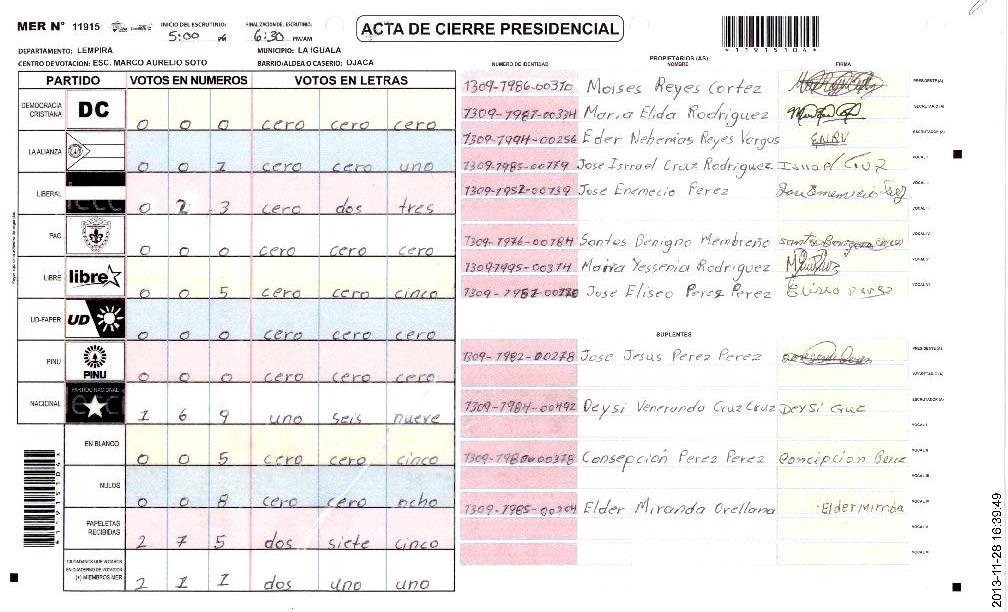 MER Nº 11915 INICIO DEL ESCRUTINIO: 5:00 PM FINALIZACION DEL ESCRUTINIO: 6:30 PM/AM
ACTA DE CIERRE PRESIDENCIAL
*11915104*
DEPARTAMENTO: LEMPIRA MUNICIPIO: LA IGUALA
CENTRO DE VOTACION: ESC. MARCO AURELIO SOTO BARRIO/ALDEA O CASERIO: OJACA
PARTIDO VOTOS EN NUMEROS VOTOS EN LETRAS
DEMOCRACIA CRISTIANA DC 0 0 0 cero cero cero
LA ALIANZA 0 0 1 cero cero uno
LIBERAL 0 2 3 cero dos tres
PAC 0 0 0 cero cero cero
LIBRE libre 0 0 5 cero cero cinco
UD-FAPER UD 0 0 0 cero cero cero
PINU PINU 0 0 0 cero cero cero
NACIONAL PARTIDO NACIONAL 1 6 9 uno seis nueve
EN BLANCO 0 0 5 cero cero cinco
NULOS 0 0 8 cero cero ocho
PAPELETAS RECIBIDAS 2 7 5 dos siete cinco
CIUDADANOS QUE VOTARON EN CUADERNO DE VOTACION (+) MIEMBROS MER 2 1 1 dos uno uno
*11915104*
PROPIETARIOS (AS)
NUMERO DE IDENTIDAD NOMBRE FIRMA
1309-1986-00310 Moises Reyes Cortez PRESIDENTE(A)
1309-1987-00334 Maria Elida Rodriguez SECRETARIO(A)
1309-1994-00256 Eder Nehemias Reyes Vargas ENRV ESCRUTADOR(A)
1309-1985-00779 Jose Isrrael Cruz Rodriguez Isrrael Cruz VOCAL I
1309-1952-00739 Jose Enemecio Perez VOCAL II
VOCAL III
1309-1976-00184 Santos Benigno Membreño VOCAL IV
1309-1995-00314 Maria Yessenia Rodriguez VOCAL V
1309-1987-00770 Jose Eliseo Perez Perez Eliseo Perez VOCAL VI
SUPLENTES
1309-1982-00278 Jose Jesus Perez Perez PRESIDENTE(A)
SECRETARIO(A)
1309-1984-00492 Deysi Veneranda Cruz Cruz Deysi Cruz ESCRUTADOR(A)
VOCAL I
1309-1980-00378 Consepción Perez Perez Concepcion Perez VOCAL II
VOCAL III
1309-1985-00204 Elder Miranda Orellana Elder Miranda VOCAL IV
VOCAL V
VOCAL VI
2013-11-28 16:39:49